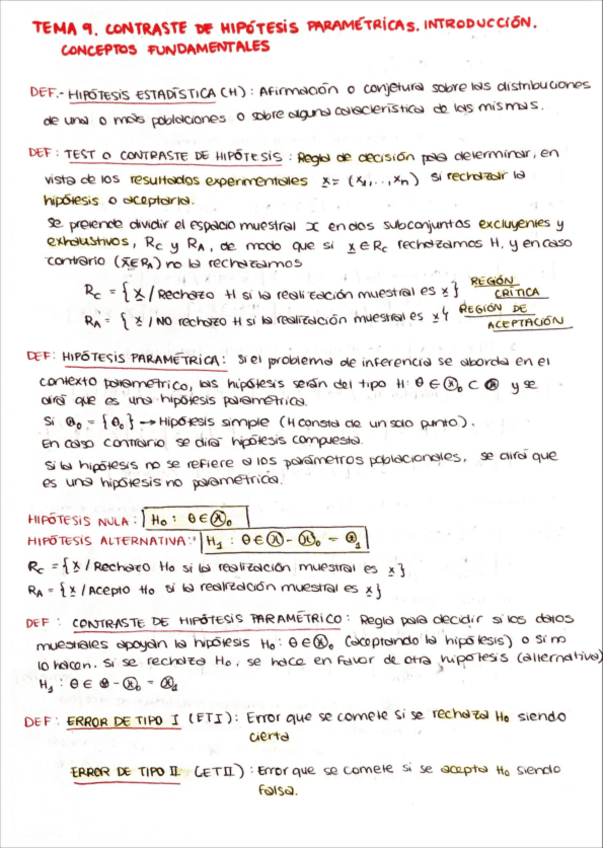 TEMA 9. CONTRASTE DE HIPÓTESIS PARAMÉTRICAS. INTRODUCCIÓN.
CONCEPTOS FUNDAMENTALES
DEF.- HIPÓTESIS ESTADÍSTICA (H): Afirmación o conjetura sobre las distribuciones
de una o más poblaciones o sobre alguna característica de las mismas.
DEF: TEST O CONTRASTE DE HIPÓTESIS: Regla de decisión para determinar, en
vista de los resultados experimentales x = (x₁,...,xₙ) si rechazar la
hipótesis o aceptarla.
Se pretende dividir el espacio muestral X en dos subconjuntos excluyentes y
exhaustivos, Rc y RA, de modo que si x ∈ Rc rechazamos H, y en caso
contrario (x ∈ RA) no la rechazamos
Rc = { x / Rechazo H si la realización muestral es x } REGÓN CRÍTICA
RA = { x / NO rechazo H si la realización muestral es x } REGIÓN DE ACEPTACIÓN
DEF: HIPÓTESIS PARAMÉTRICA: Si el problema de inferencia se aborda en el
contexto paramétrico, las hipótesis serán del tipo H: θ ∈ Θ₀ ⊂ Θ y se
dirá que es una hipótesis paramétrica.
Si Θ₀ = {θ₀} → Hipótesis simple (H consta de un solo punto).
En caso contrario se dirá hipótesis compuesta.
Si la hipótesis no se refiere a los parámetros poblacionales, se dirá que
es una hipótesis no paramétrica.
HIPÓTESIS NULA: H₀: θ ∈ Θ₀
HIPÓTESIS ALTERNATIVA: H₁: θ ∈ Θ - Θ₀ = Θ₁
Rc = {x / Rechazo H₀ si la realización muestral es x}
RA = {x / Acepto H₀ si la realización muestral es x}
DEF: CONTRASTE DE HIPÓTESIS PARAMÉTRICO: Regla para decidir si los datos
muestrales apoyan la hipótesis H₀: θ ∈ Θ₀ (aceptando la hipótesis) o si no
lo hacen. Si se rechaza H₀, se hace en favor de otra hipótesis (alternativa)
H₁: θ ∈ Θ - Θ₀ = Θ₁
DEF: ERROR DE TIPO I (ETI): Error que se comete si se rechaza H₀ siendo
cierta
ERROR DE TIPO II (ETII): Error que se comete si se acepta H₀ siendo
falsa.